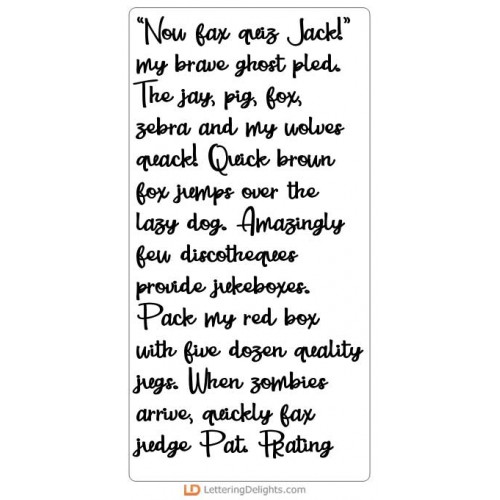 "Now fax quiz Jack!"
my brave ghost pled.
The jay, pig, fox,
zebra and my wolves
quack! Quick brown
fox jumps over the
lazy dog. Amazingly
few discotheques
provide jukeboxes.
Pack my red box
with five dozen quality
jugs. When zombies
arrive, quickly fax
judge Pat. PRating
LD LetteringDelights.com